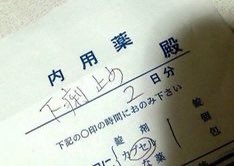 内用薬 殿
下痢止め 2日分
下記の○印の時間におのみ下さい
錠剤 1 錠個
カプセル 包